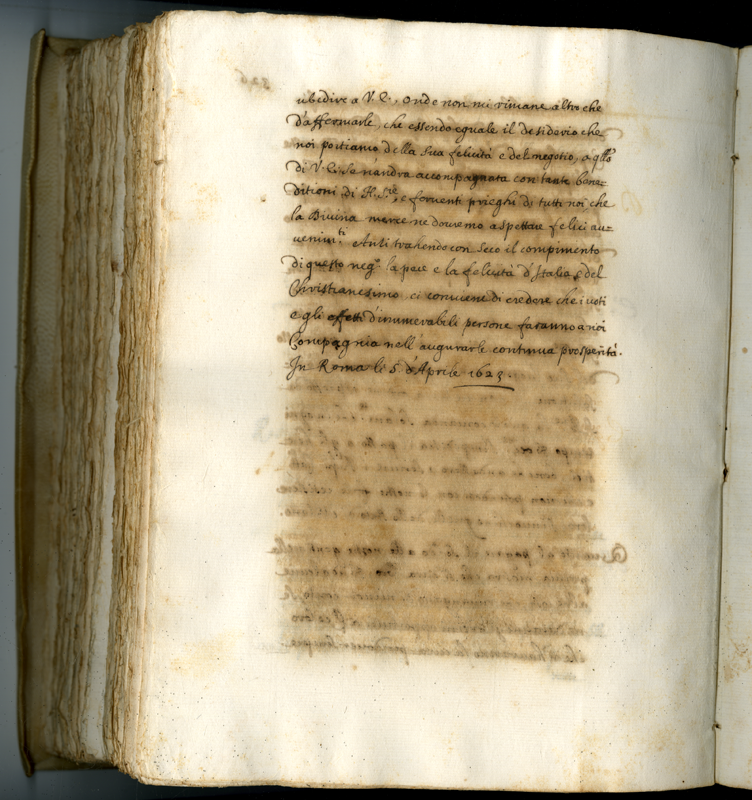 ubedire a V. E., onde non mi rimane altro che
d'affermarle, che essendo eguale il desiderio che
noi portiamo della sua felicità e del negotio, a qllo
di V. E. se n'andra accompagnata con tante bene-
ditioni di N. S.re, e ferventi prieghi di tutti noi che
la Divina merce ne dovremo aspettare felici au-
venim.ti Anzi trahendo con seco il compimento
di questo neg.o la pace e la felicità d'Italia, e del
Christianesimo, ci conviene di credere che i voti
e gli effetti d'innumerabili persone faranno a noi
Compagnia nell'augurarle continua prosperità.
In Roma li 5 d'Aprile 1623.